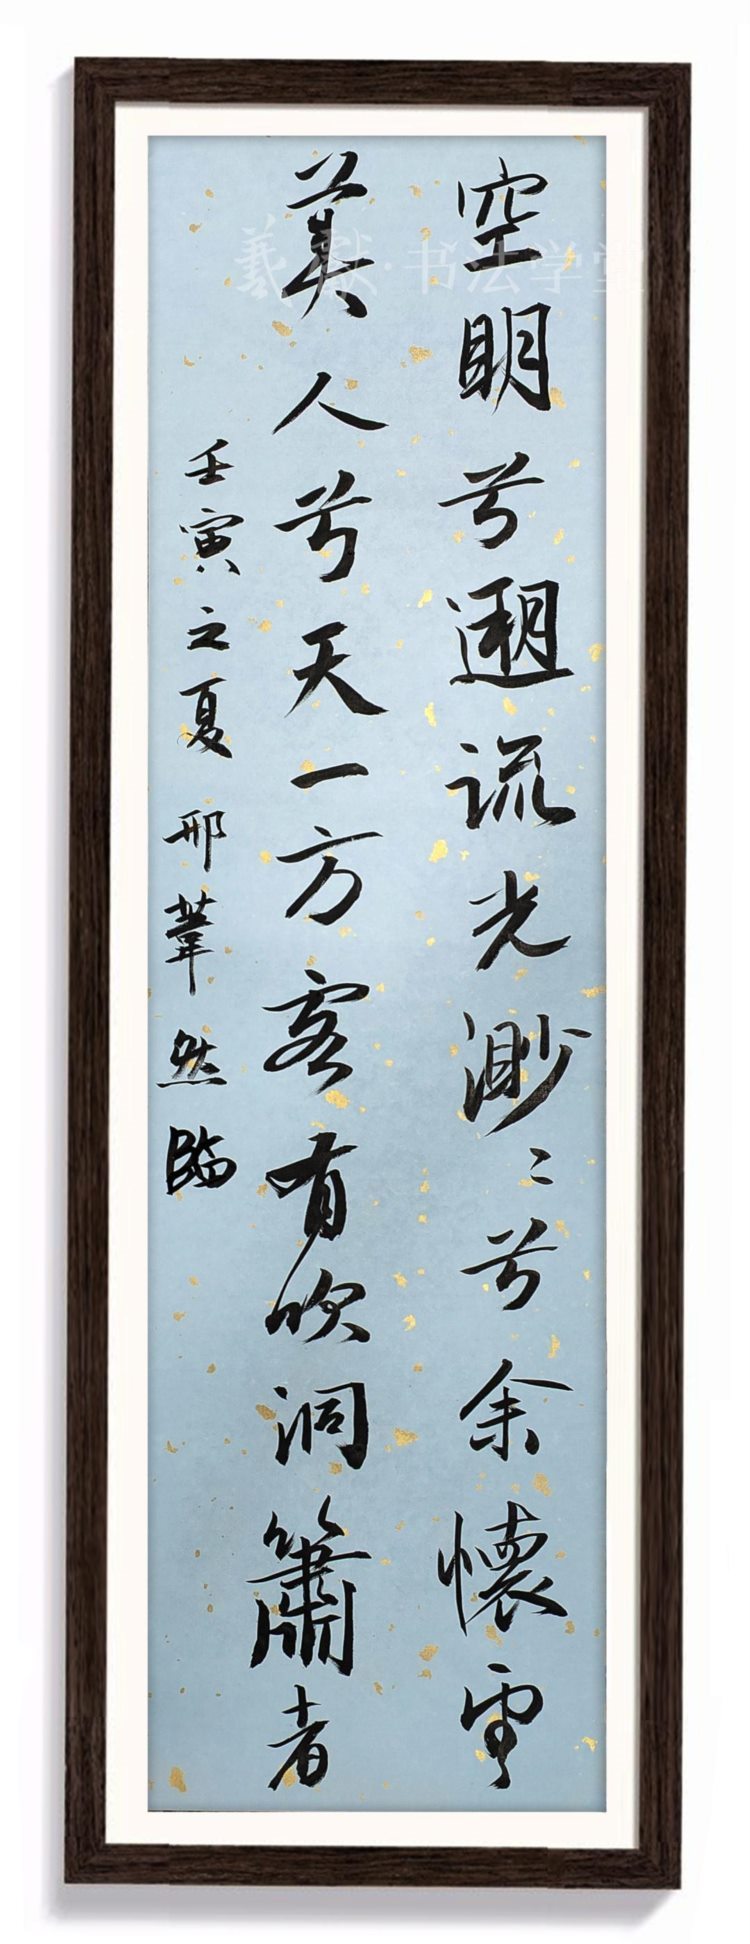 羲獻·书法学堂
空明兮遡流光渺〻兮余懷望
美人兮天一方客有吹洞簫者
壬寅之夏 邢葦然臨